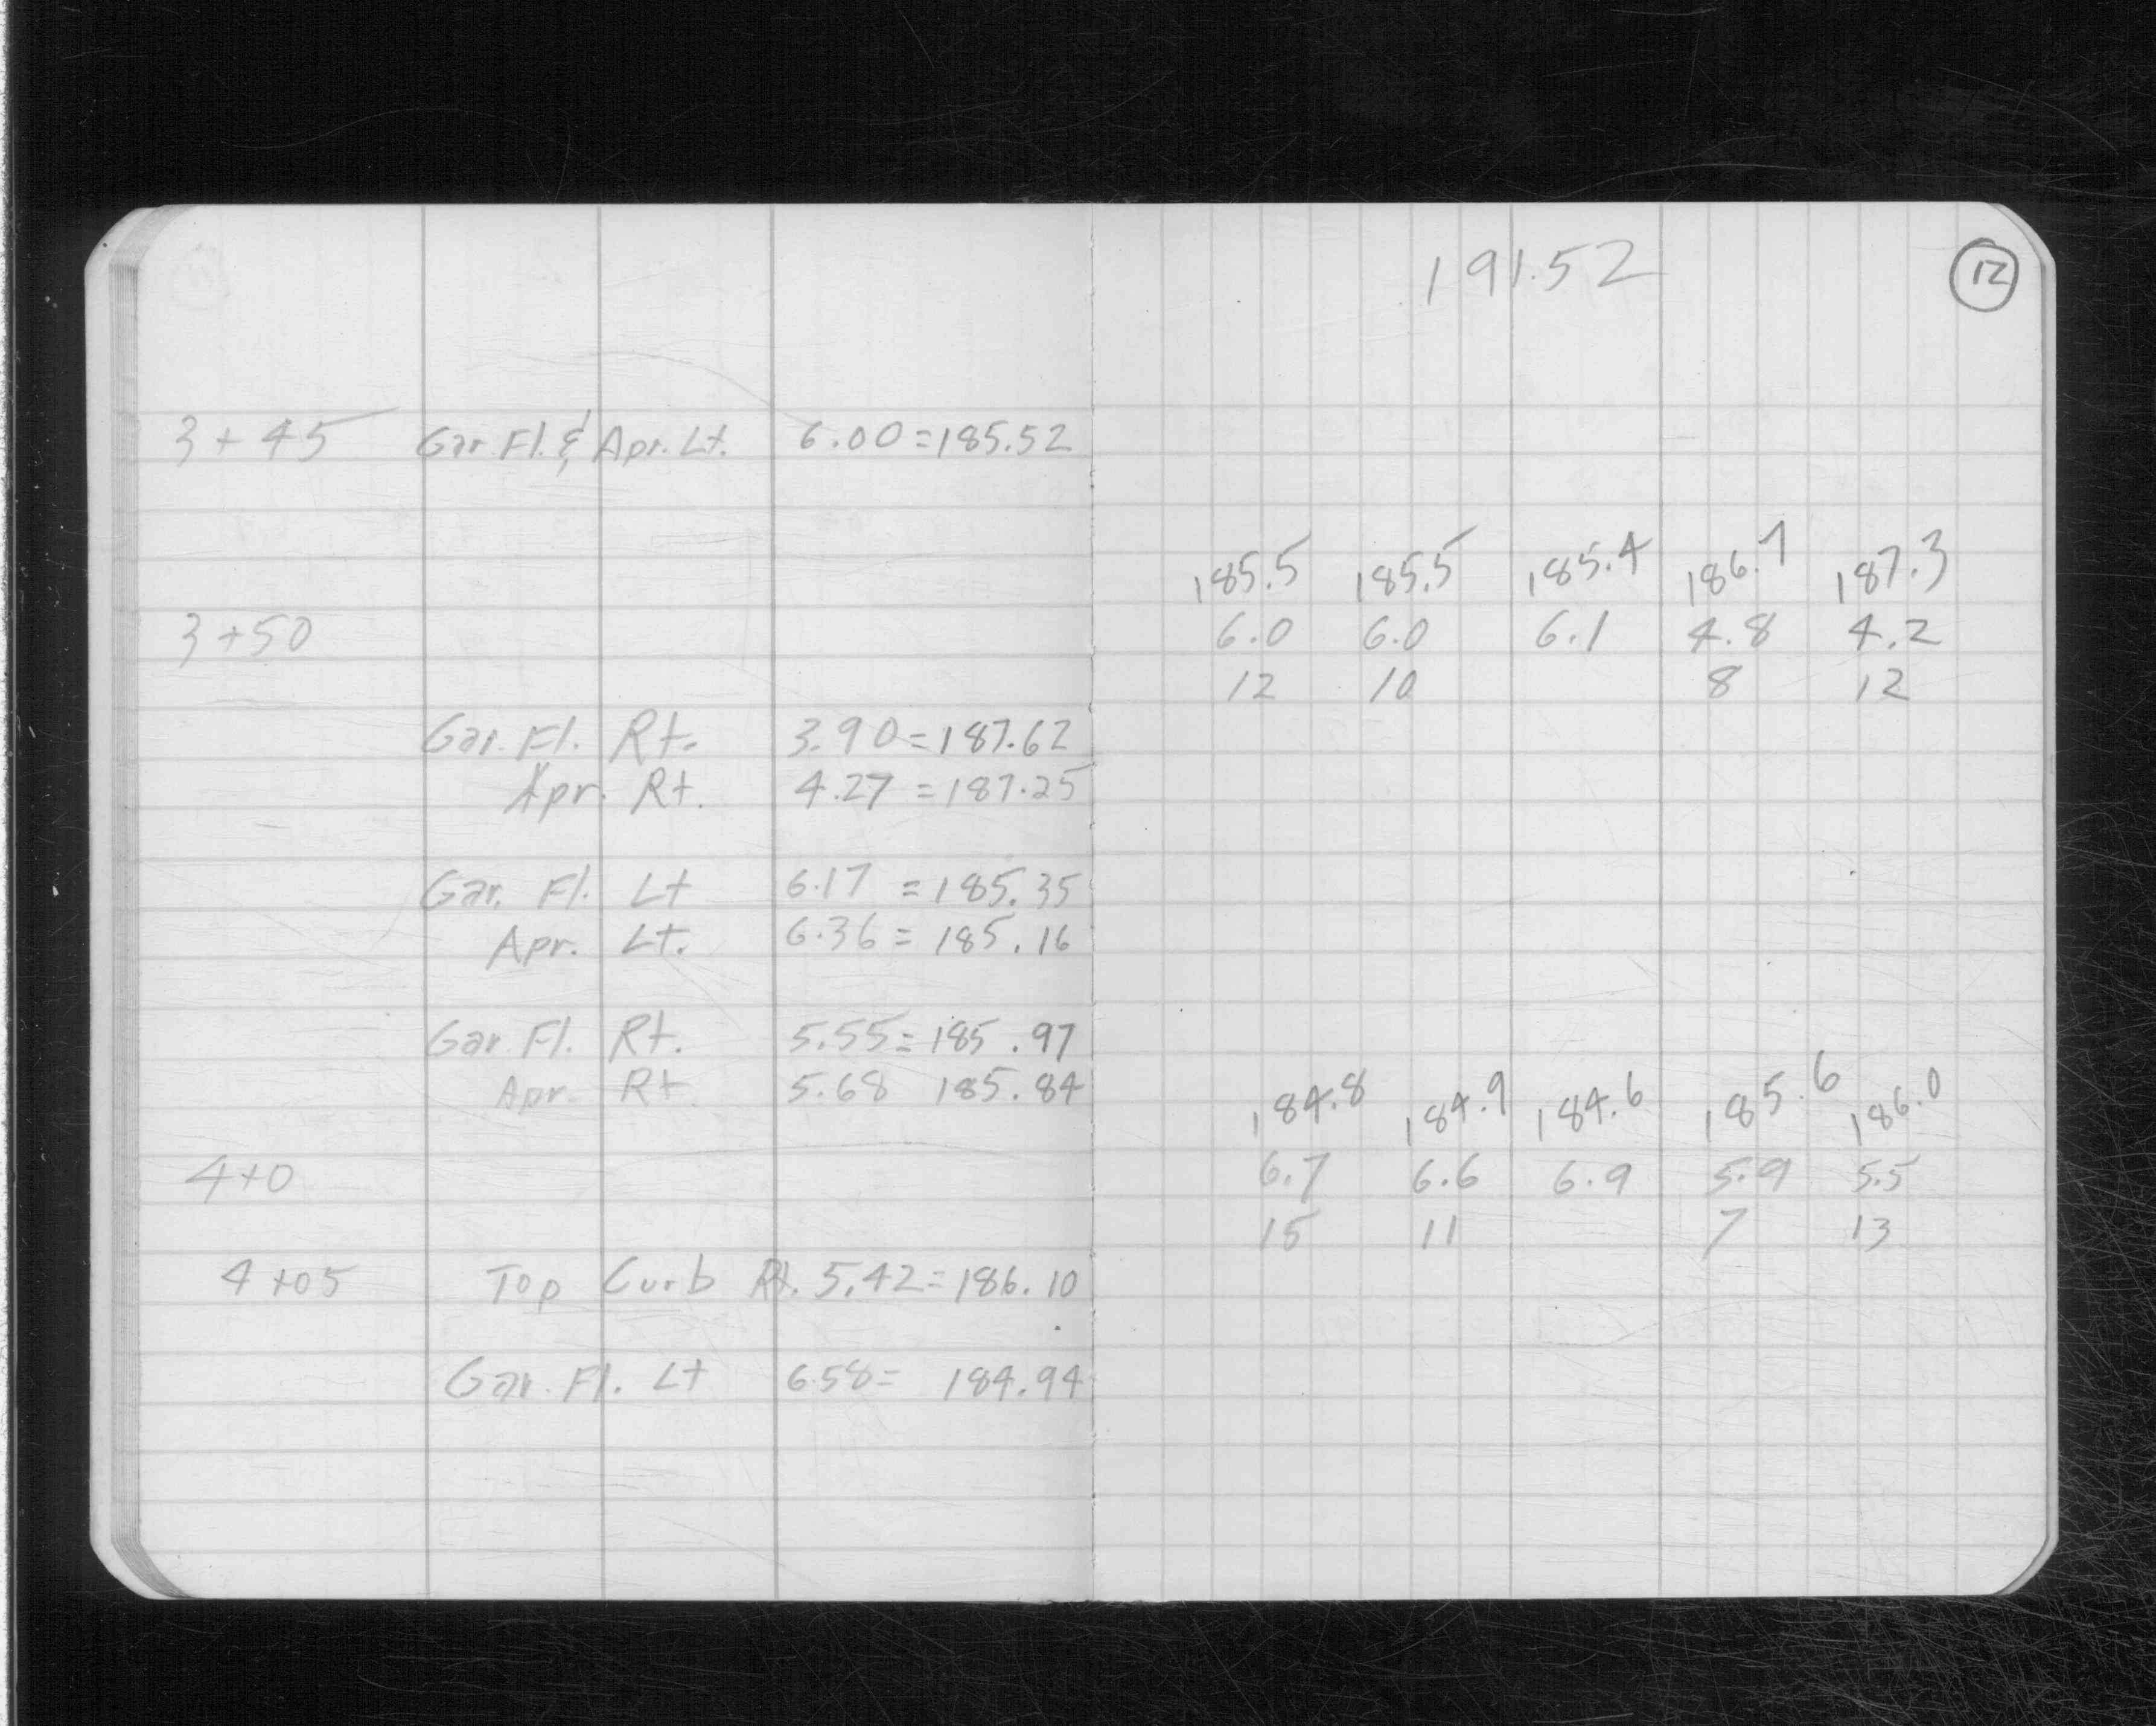 191.52
12
3+45 Gar. Fl. & Apr. Lt. 6.00=185.52
185.5 185.5 185.4 186.7 187.3
3+50 6.0 6.0 6.1 4.8 4.2
12 10 8 12
Gar. Fl. Rt. 3.90=187.62
Apr. Rt. 4.27=187.25
Gar. Fl. Lt 6.17=185.35
Apr. Lt. 6.36=185.16
Gar. Fl. Rt. 5.55=185.97
Apr. Rt 5.68 185.84
184.8 184.9 184.6 185.6 186.0
4+0 6.7 6.6 6.9 5.9 5.5
15 11 7 13
4+05 Top Curb Rt. 5.42=186.10
Gar. Fl. Lt 6.58= 184.94